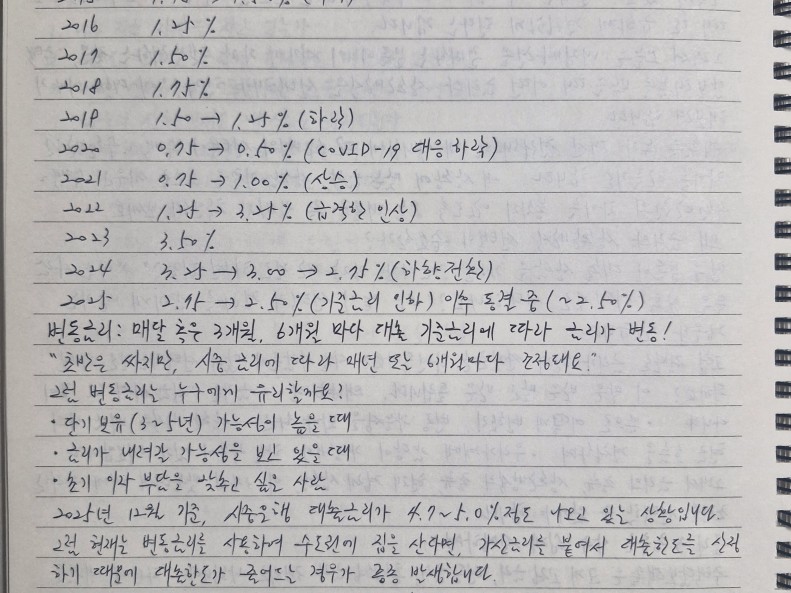 2016 1.25%
2017 1.50%
2018 1.75%
2019 1.50 → 1.25% (하락)
2020 0.75 → 0.50% (COVID-19 대응 하락)
2021 0.75 → 1.00% (상승)
2022 1.25 → 3.25% (급격한 인상)
2023 3.50%
2024 3.25 → 3.00 → 2.75% (하향전환)
2025 2.75 → 2.50% (기준금리 인하) 이후 동결 중 (~2.50%)
변동금리: 매달 혹은 3개월, 6개월 마다 대출 기준금리에 따라 금리가 변동!
"초반은 싸지만, 시중 금리에 따라 매년 또는 6개월마다 조정돼요."
그럼 변동금리는 누구에게 유리할까요?
· 단기 보유(3~5년) 가능성이 높을 때
· 금리가 내려갈 가능성을 보고 있을 때
· 초기 이자 부담을 낮추고 싶은 사람
2025년 12월 기준, 시중은행 대출금리가 4.7~5.0%정도 나오고 있는 상황입니다.
그럼 현재는 변동금리를 사용하여 수도권에 집을 산다면, 가산금리를 붙여서 대출한도를 산정
하기 때문에 대출한도가 줄어드는 경우가 종종 발생합니다.